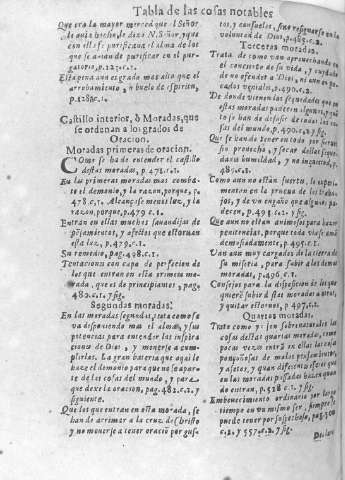 Tabla de las cosas notables
Que era la mayor merced que el Señor
le auia hecho, le dixo N. Señor, y que
con ella se purificaua el alma de los
que se auian de purificar en el pur-
gatorio, p.125.c.1.
Esta pena aun es grado mas alto que el
arrobamiento, n buelo de espiritu,
p.128.c.1.
Castillo interior, ò Moradas, que
se ordenan a los grados de
Oracion.
Moradas primeras de oracion.
Como se ha de entender el castillo
destas moradas, p.471.c.1.
En las primeras moradas mas comba-
te el demonio, y la razon, porque, p.
478.c.1. Alcançase menos luz, y la
razon porque, p.479.c.1.
Entran en ellas muchas sauandijas de
pẽsamientos, y afectos que estoruan
esta luz, p.479.c.1.
Su remedio, pag.498.c.1.
Tentaciones con capa de perfecion de
los que entran en esta primera mo-
rada, que es de principiantes, pag.
480.c.1. y sig.
Segundas moradas.
En las moradas segundas, trata como se
va disponiendo mas el alma, y sus
potencias para entender las inspira-
ciones de Dios, y mouerse a cum-
plirlas. La gran bateria que aqui le
haze el demonio para que no se apar-
te de las cosas del mundo, y para
que dexe la oracion, pag.482.c.2. y
siguiente.
Que los que entran en esta morada, se
han de arrimar a la cruz de Christo
y no mouerse a tener oraciõ por gus-
tos, y consuelos, sino resignarse en la
voluntad de Dios, p.485.c.2.
Terceras moradas.
Trata de como van aprouechando en
el concierto de su vida, y cuydado
de no ofender a Dios, ni aun en pe-
cados veniales, p.490.c.1.
De donde vienen las sequedades que en
estas moradas padecen algunos, y que
se han de desasir de todas las co-
sas del mundo, p.490.c.1. y sig.
Que se han de tener en todo por sieruos
sin prouecho, y sacar destas seque-
dades humildad, y no inquietud, p.
489.c.1.
Como aun no estan fuertes, lo experi-
mentan en la prueua de los traba-
jos, y de vn engaño que alguno pa-
decen, p.491.c.2. y sig.
Que aun no estan animosos para hazer
penitencias, porque toda via se amã
demasiadamente, p.495.c.1.
Van aun muy cargados de la tierra de
su miseria, para subir a las demas
moradas, p.496.c.1.
Consejos para la disposicion de los que
quieren subir destas moradas a otras,
y quitar estoruos, p.497.c.1.
Quartas moradas.
Trata como ya son sobrenaturales las
cosas destas quartas moradas, como
pocas vezes entrã en ellas las cosas
ponçoñosas de malos pensamientos,
y afetos, y quan diferentes seran que
en las moradas passadas hazen quando
entran, p.528.c.1. y sig.
Embouecimiento ordinario por largo
tiempo en vn mismo ser, siempre se
puede tener por sospechoso, p.500
c.2. y 557.c.2. y sig.